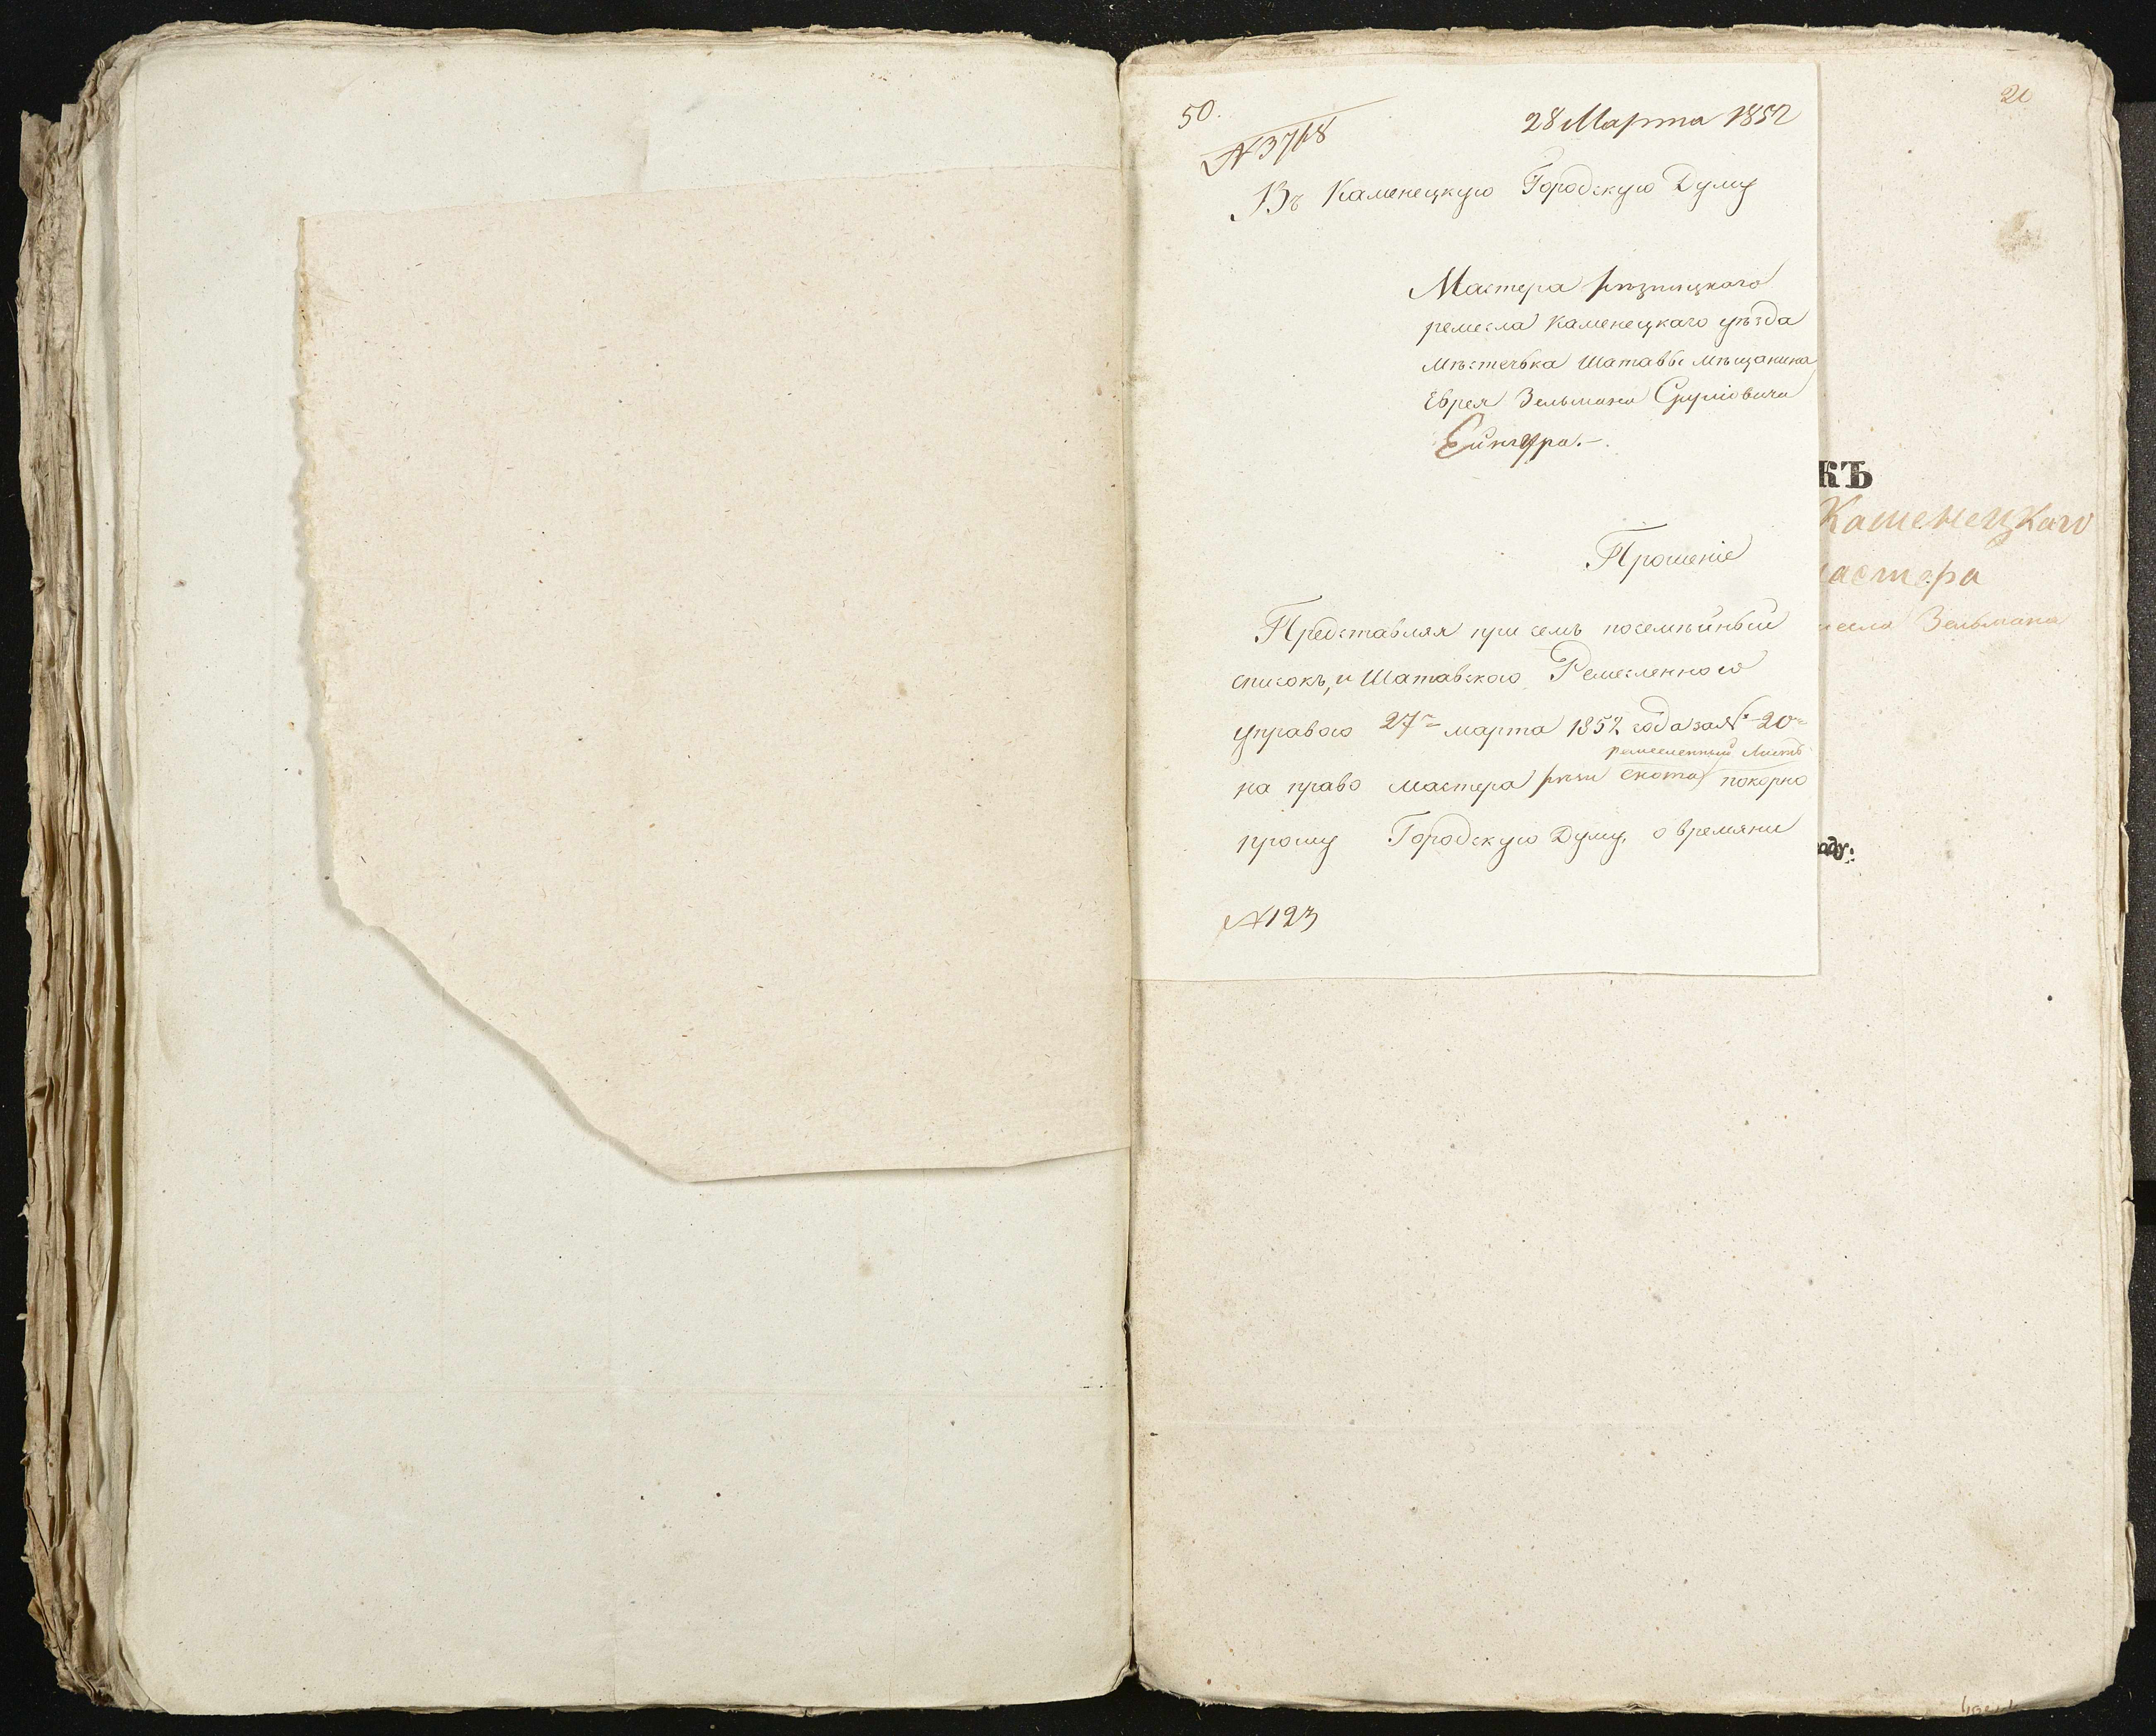 50.
28 Марта 1852
№ 3768
Въ Каменецкую Городскую Думу
Мастера
ремесла Каменецкаго уѣзда
мѣстечька Шатавы мѣщанина
Еврея Зельмана
Прошеніе
Представляя при семъ посемѣйный
списокъ, и Шатавскою Ремесленною
управою 27го марта 1852 года за № 20м
ремесленный листъ
на право мастера рѣзи скота покорно
прошу Городскую Думу, о времяни
№ 123
20
КЪ
Каменецкаго
мастера
Зельмана
оду: